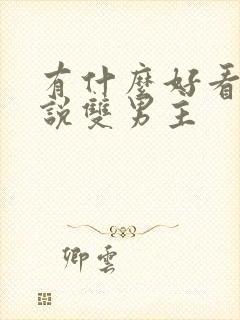 有什麼好看
說雙男主
卿雲